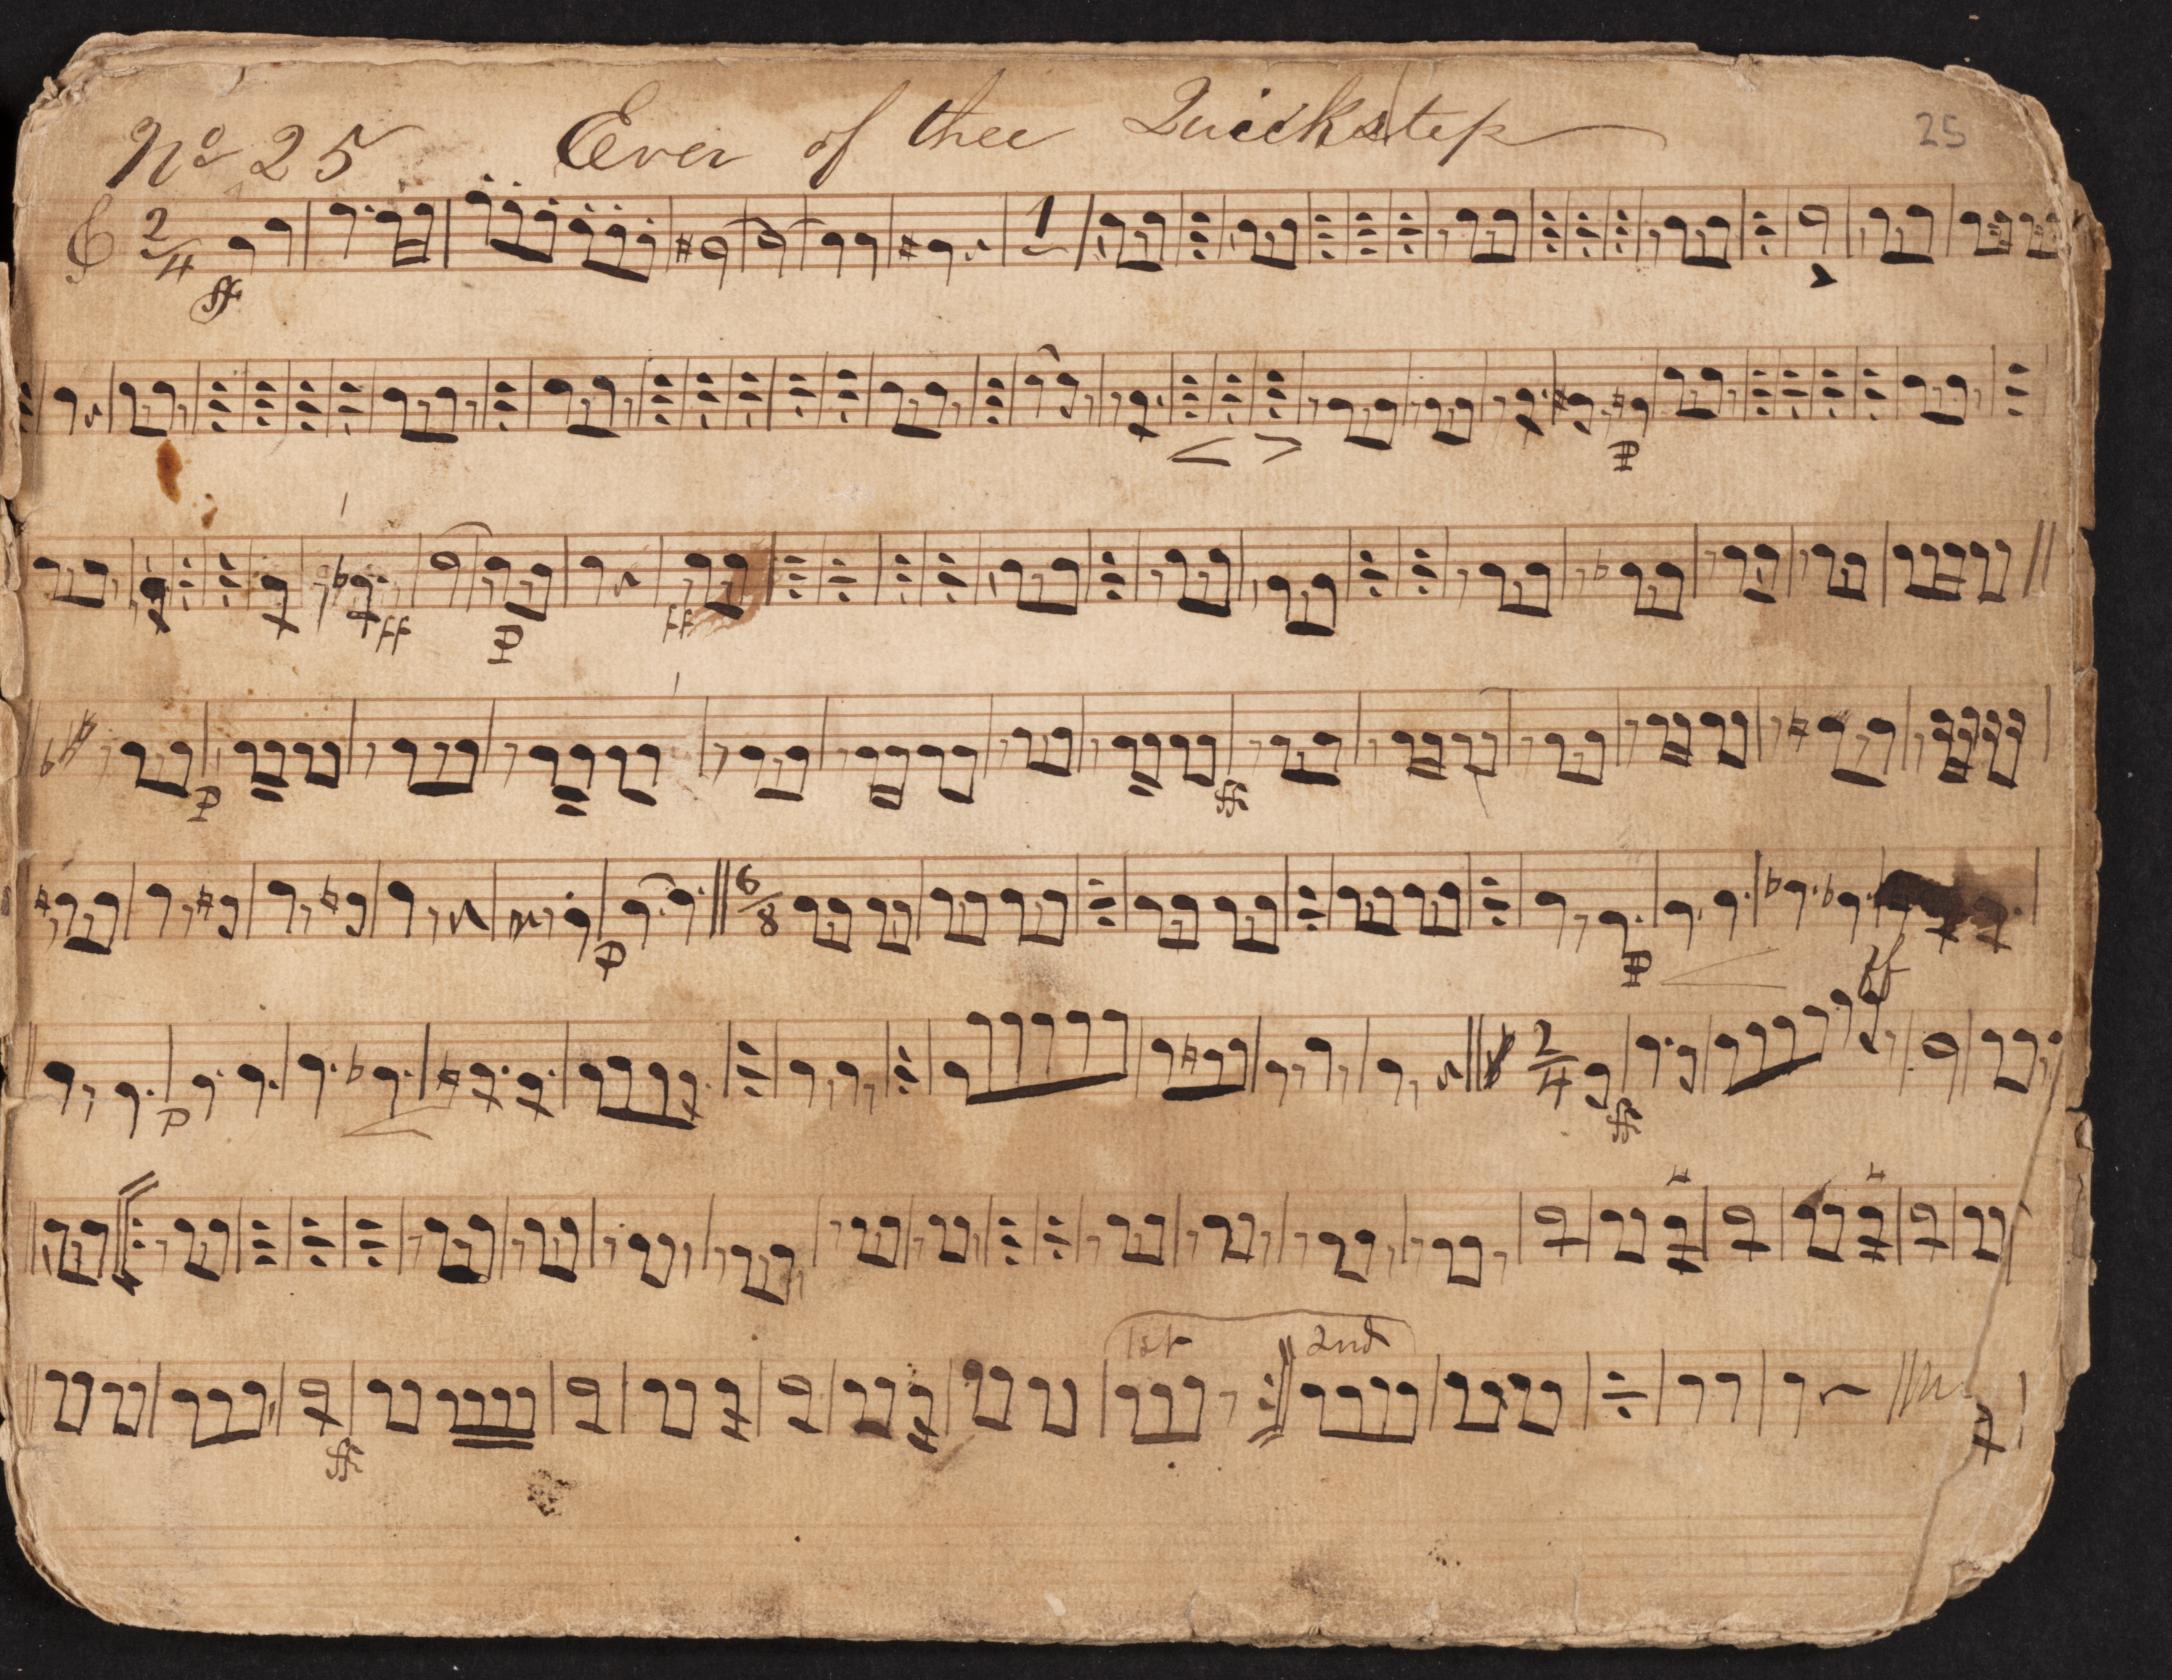 No 25 Ever of thee Quickstep 25
2/4
ff 1
p
ff p ff
p ff
6/8
p p ff
2/4
p ff
1st 2nd
ff